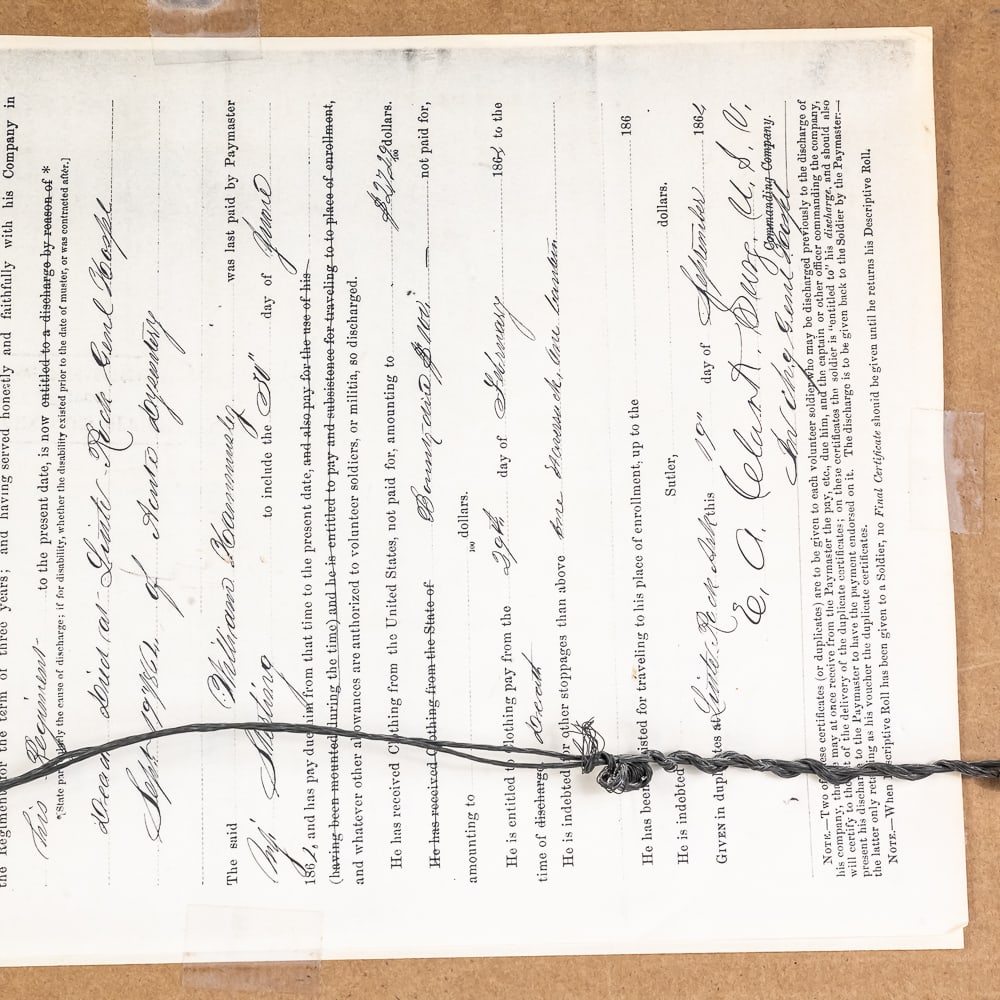 the Regiment for the term of three years; and having served honestly and faithfully with his Company in
this Regiment to the present date, is now entitled to a discharge by reason of *
*[State the cause of discharge; if for disability, whether the disability existed prior to the date of muster, or was contracted after.]
Dead Died at Little Rock Genl Hospl
Sept of Acute Dysentery
The said William Hammersly was last paid by Paymaster
Maj to include the 30" day of June
186 , and has pay due him from that time to the present date, and also pay for the use of his
(having been mounted during the time) and he is entitled to pay and subsistence for traveling to place of enrollment,
and whatever other allowances are authorized to volunteer soldiers, or militia, so discharged.
He has received Clothing from the United States, not paid for, amounting to $ 27 29/100 dollars.
He has received Clothing from the State of not paid for,
amounting to /100 dollars.
He is entitled to clothing pay from the 29th day of 1864 to the
time of discharge, death
He is indebted for other stoppages than above one Haversack, one canteen
He has been isted for traveling to his place of enrollment, up to the 186
He is indebted Sutler, dollars.
GIVEN in duplicates at Little Rock Ark this 19" day of September 1864
E. A. Clark. Surg. U. S. V.
Commanding Company.
In chg. Genl Hospl
NOTE.—Two of these certificates (or duplicates) are to be given to each volunteer soldier who may be discharged previously to the discharge of
his company, that he may at once receive from the Paymaster the pay, etc., due him, and the captain or other officer commanding the company,
will certify to the of the delivery of the duplicate certificates; on these certificates the soldier is "entitled to" his discharge, and should also
present his discharge to the Paymaster to have the payment endorsed on it. The discharge is to be given back to the Soldier by the Paymaster:—
the latter only retaining as his voucher the duplicate certificates.
NOTE.—When Descriptive Roll has been given to a Soldier, no Final Certificate should be given until he returns his Descriptive Roll.